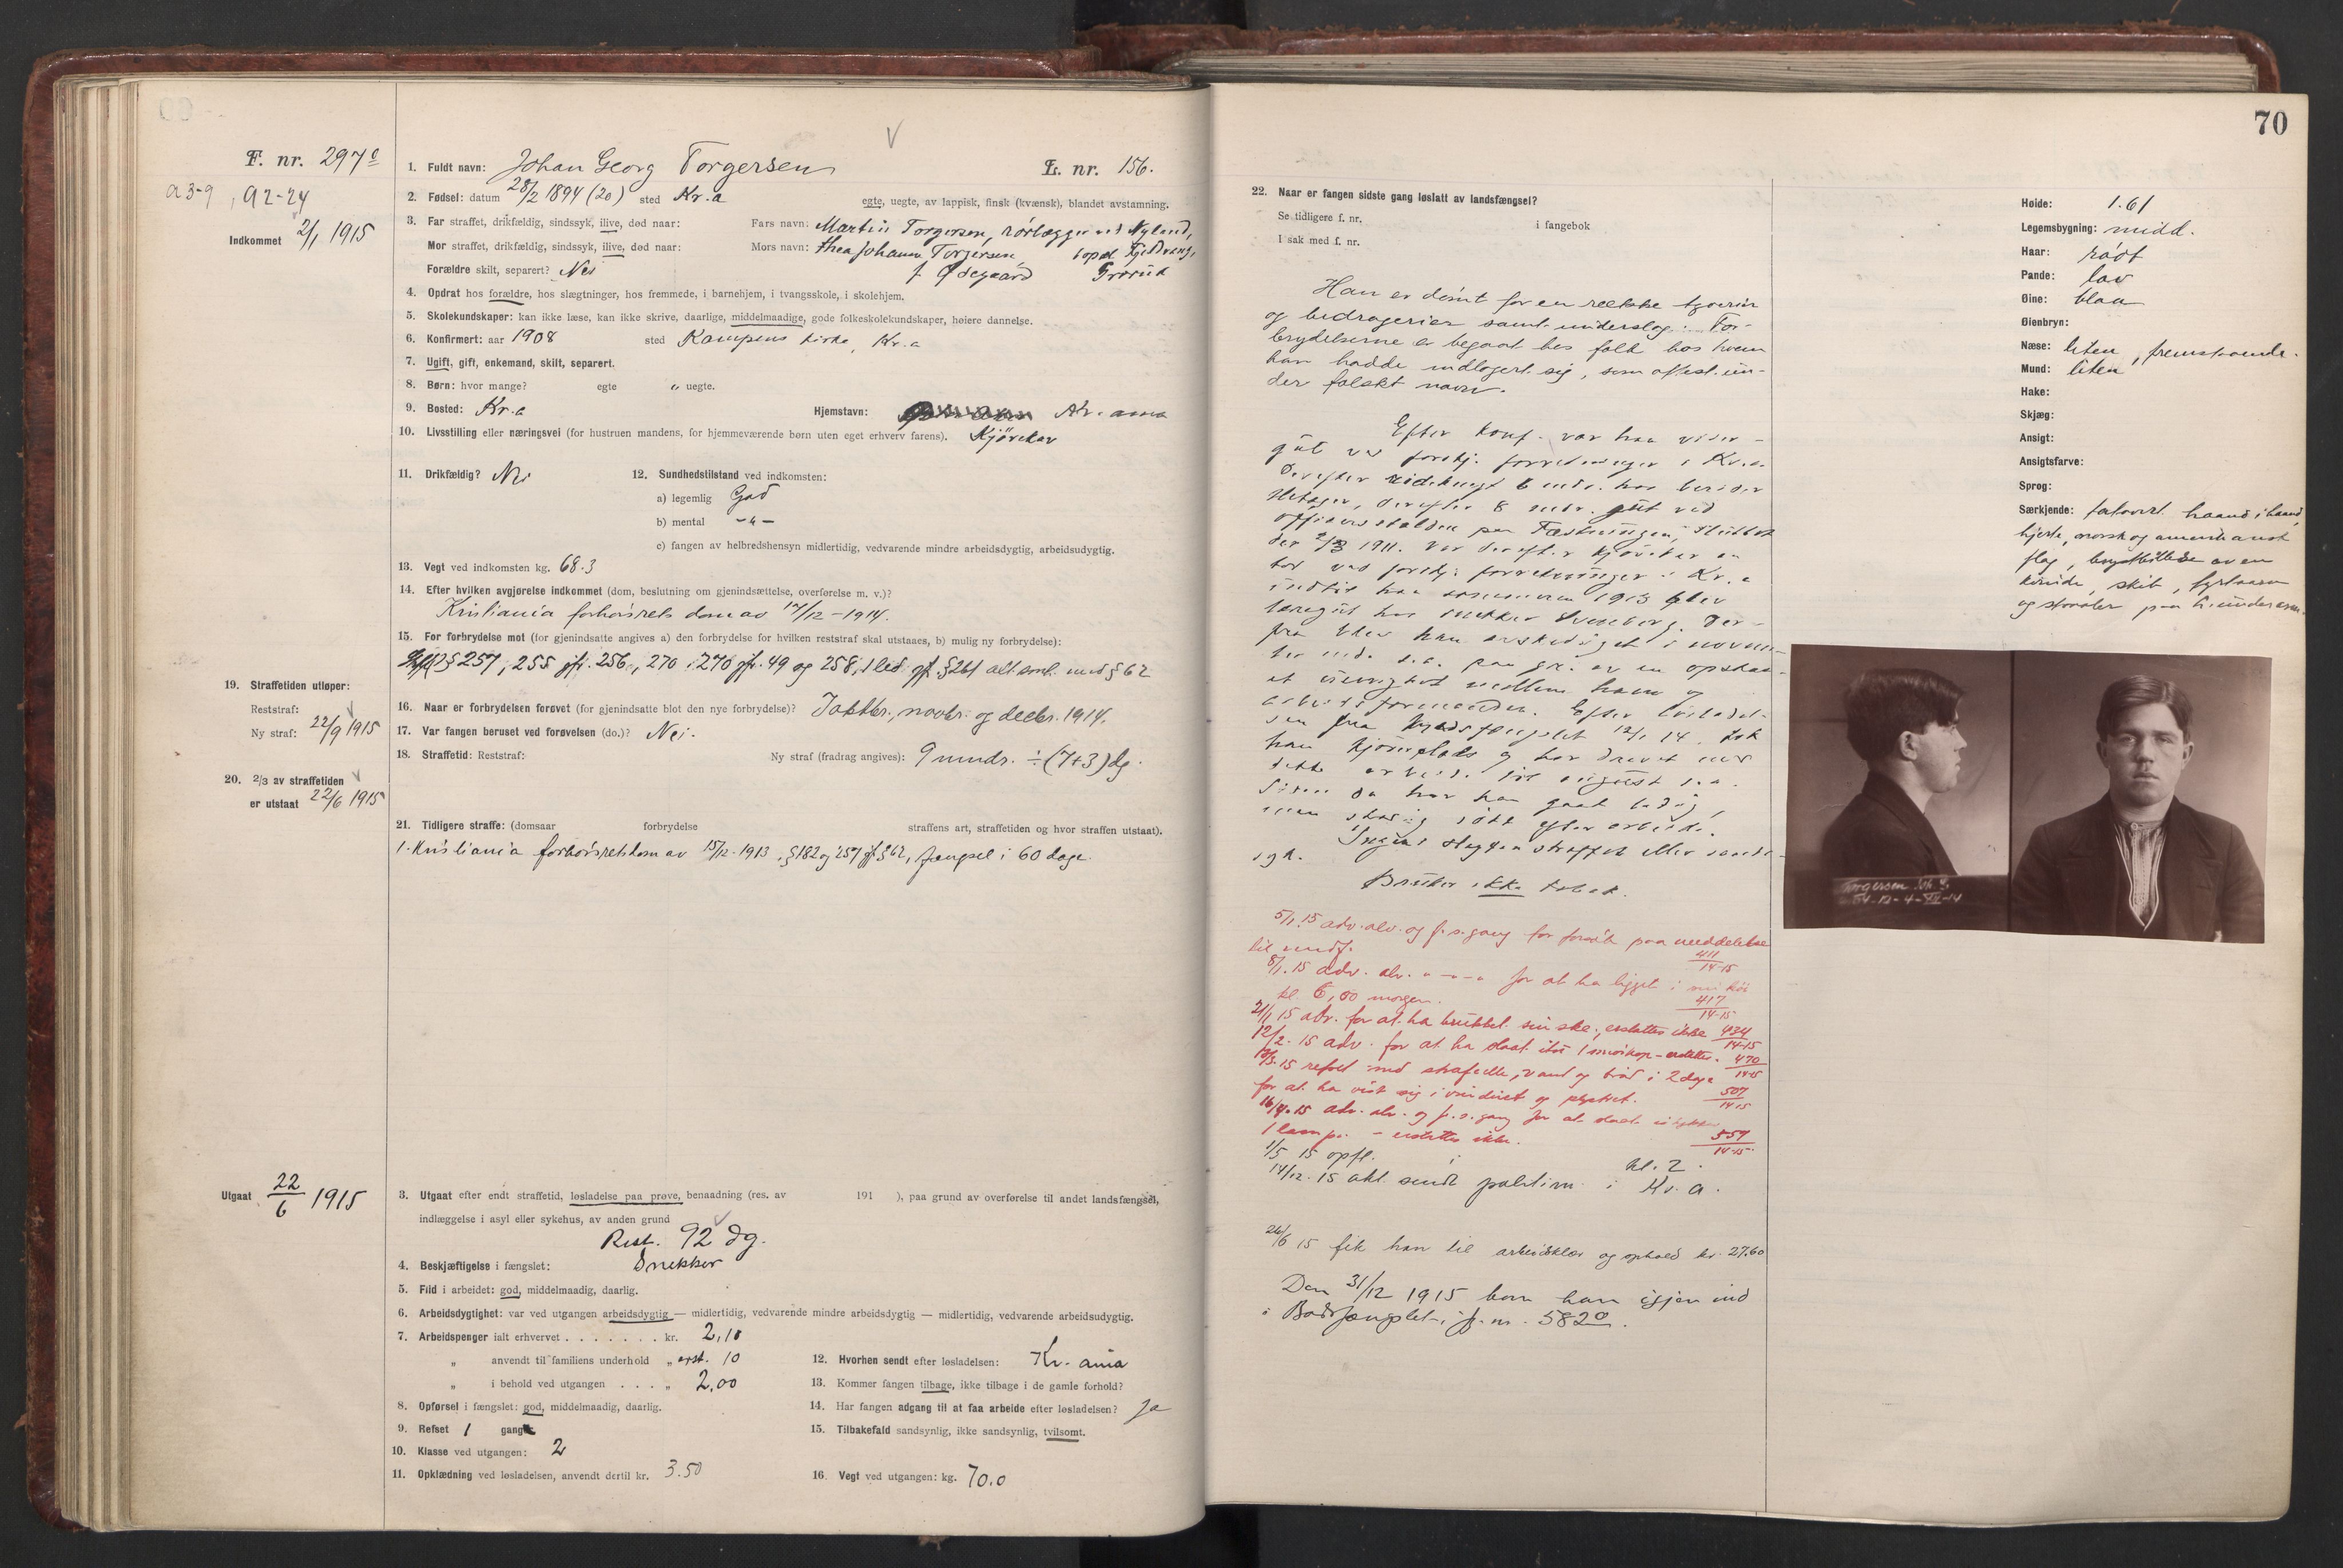 F. nr. 297º
a 3-9, 92-24
Indkommet 2/1 1915
1. Fuldt navn: Johan Georg Torgersen L. nr. 156.
2. Fødsel: datum 28/2 1894 (20) sted Kr.a egte, uegte, av lappisk, finsk (kvænsk), blandet avstamning.
3. Far straffet, drikfældig, sindssyk, ilive, død naar: Fars navn: Martin Torgersen, rørlægger ved Nyland,
Mor straffet, drikfældig, sindssyk, ilive, død naar: Mors navn: Thea Johanne Torgersen,
Forældre skilt, separert? Nei f. Ødegaard Grorud
4. Opdrat hos forældre, hos slægtninger, hos fremmede, i barnehjem, i tvangsskole, i skolehjem.
5. Skolekundskaper: kan ikke læse, kan ikke skrive, daarlige, middelmaadige, gode folkeskolekundskaper, høiere dannelse.
6. Konfirmert: aar 1908 sted Kampens kirke, Kr.a
7. Ugift, gift, enkemand, skilt, separert.
8. Børn: hvor mange? egte „ uegte.
9. Bosted: Kr.a Hjemstavn: Kr.ania
10. Livsstilling eller næringsvei (for hustruen mandens, for hjemmeværende børn uten eget erhverv farens). Kjørekar
11. Drikfældig? Nei 12. Sundhetstilstand ved indkomsten:
a) legemlig God
b) mental -"-
c) fangen av helbredshensyn midlertidig, vedvarende mindre arbeidsdygtig, arbeidsudygtig.
13. Vegt ved indkomsten kg. 68.3
14. Efter hvilken avgjørelse indkommet (dom, beslutning om gjenindsættelse, overførelse m. v.)?
Kristiania forhørsrets dom av 17/12 - 1914.
15. For forbrydelse mot (for gjenindsatte angives a) den forbrydelse for hvilken reststraf skal utstaaes, b) mulig ny forbrydelse):
§ 257, 255 jfr. 256, 270, 270 jfr. 49 og 258, 1 led jf. § 261 alt smh. med § 62
19. Straffetiden utløper:
Reststraf:
Ny straf: 22/9 1915
16. Naar er forbrydelsen forøvet (for gjenindsatte blot den nye forbrydelse)? I oktbr., novbr. og decbr. 1914.
17. Var fangen beruset ved forøvelsen (do.)? Nei.
18. Straffetid: Reststraf: Ny straf (fradrag angives): 9 mndr. ÷ (7+3) dg.
20. 2/3 av straffetiden
er utstaat 22/6 1915
21. Tidligere straffe: (domsaar forbrydelse straffens art, straffetiden og hvor straffen utstaat).
1. Kristiania forhørsretsdom av 15/12-1913, § 182 og 257 jf. § 62, fængsel i 60 dage.
Utgaat 22/6 1915
3. Utgaat efter endt straffetid, løsladelse paa prøve, benaadning (res. av 191 ), paa grund av overførelse til andet landsfængsel,
indlæggelse i asyl eller sykehus, av anden grund
Rest. 92 dg.
4. Beskjæftigelse i fængslet: Snekker
5. Flid i arbeidet: god, middelmaadig, daarlig.
6. Arbeidsdygtighet: var ved utgangen arbeidsdygtig — midlertidig, vedvarende mindre arbeidsdygtig — midlertidig, vedvarende arbeidsudygtig.
7. Arbeidspenger ialt erhvervet . . . . . . . kr. 2,10
„ anvendt til familiens underhold „ erst. 10
„ i behold ved utgangen . . . . „ 2,00
8. Opførsel i fængslet: god, middelmaadig, daarlig.
9. Refset 1 gang
10. Klasse ved utgangen: 2
11. Opklædning ved løsladelsen, anvendt dertil kr. 3.50
12. Hvorhen sendt efter løsladelsen: Kr.ania
13. Kommer fangen tilbage, ikke tilbage i de gamle forhold?
14. Har fangen adgang til at faa arbeide efter løsladelsen? Ja
15. Tilbakefald sandsynlig, ikke sandsynlig, tvilsomt.
16. Vegt ved utgangen: kg. 70.0
70
22. Naar er fangen sidste gang løslatt av landsfængsel?
Se tidligere f. nr. i fangebok
I sak med f. nr.
Han er dømt for en række tyverier
og bedragerier samt underslag. For-
brydelserne er begaat hos folk hos hvem
han hadde indlogert sig, som oftest un-
der falskt navn.
Efter konf. var han viser-
gut ved forskj. forretninger i Kr.a.
Derefter rideknegt 6 mdr. hos berider
derefter 8 mdr. gut ved
officersstalden paa Fæstningen, sluttet
der 1911. Var derefter kjørekar en
tid ved forskj. forretninger i Kr.a
indtil han sommeren 1913 blev
læregut hos snekker Svenberg. Der-
fra blev han avskediget i novem-
ber mdr. s.a. paa gr. av en opstaa-
et uenighet mellem ham og
arbeidsformanden. Efter løsladel-
sen fra 12/1 14 tok
han kjøreplads og har drevet med
dette arbeide til august s.a.
Siden da har han gaat ledig,
men stadig søkt efter arbeide.
Ingen i slegten straffet eller sinds-
syk.
Bruker ikke tobak.
5/1.15 adv. alv. og f. s. gang for forsøk paa meddelelse
til medf. 411/14-15
8/1.15 adv. alv. " - " - " for at ha ligget i
kl. 6,00 morgen. 417/14-15
21/1 15 adv. for at ha brukket sin ske, erstattes ikke 434/14-15
12/2. 15 adv. for at ha slaat itu 1 - erstattes. 470/14-15
15 refset med strafcelle, vand og brød i 2 dage 507/14-15
for at ha vist sig i vinduet og plystret.
16/4.15 adv. alv. og f. s. gang for at slaat istykker
1 lampe - erstattes ikke. 559/14-15
1/5 15 opfl. kl. 2.
14/12. 15 akt. sendt politim. i Kr.a.
26/6 15 fik han til arbeidsklær og ophold kr. 27.60
Den 31/12 1915 kom han igjen ind
i Botsfængslet i f. nr. 582º.
Høide: 1.61
Legemsbygning: midd.
Haar: rødt
Pande: lav
Øine: blaa
Øienbryn:
Næse: liten, fremstaaende.
Mund: liten
Hake:
Skjæg:
Ansigt:
Ansigtsfarve:
Sprog:
Særkjende: tatovert haand i haand,
hjerte, norsk og amerikansk
flag, brystbillede av en
kvinde, skib, fyrtaarn
og paa h. underarm.
Torgersen Joh. G.